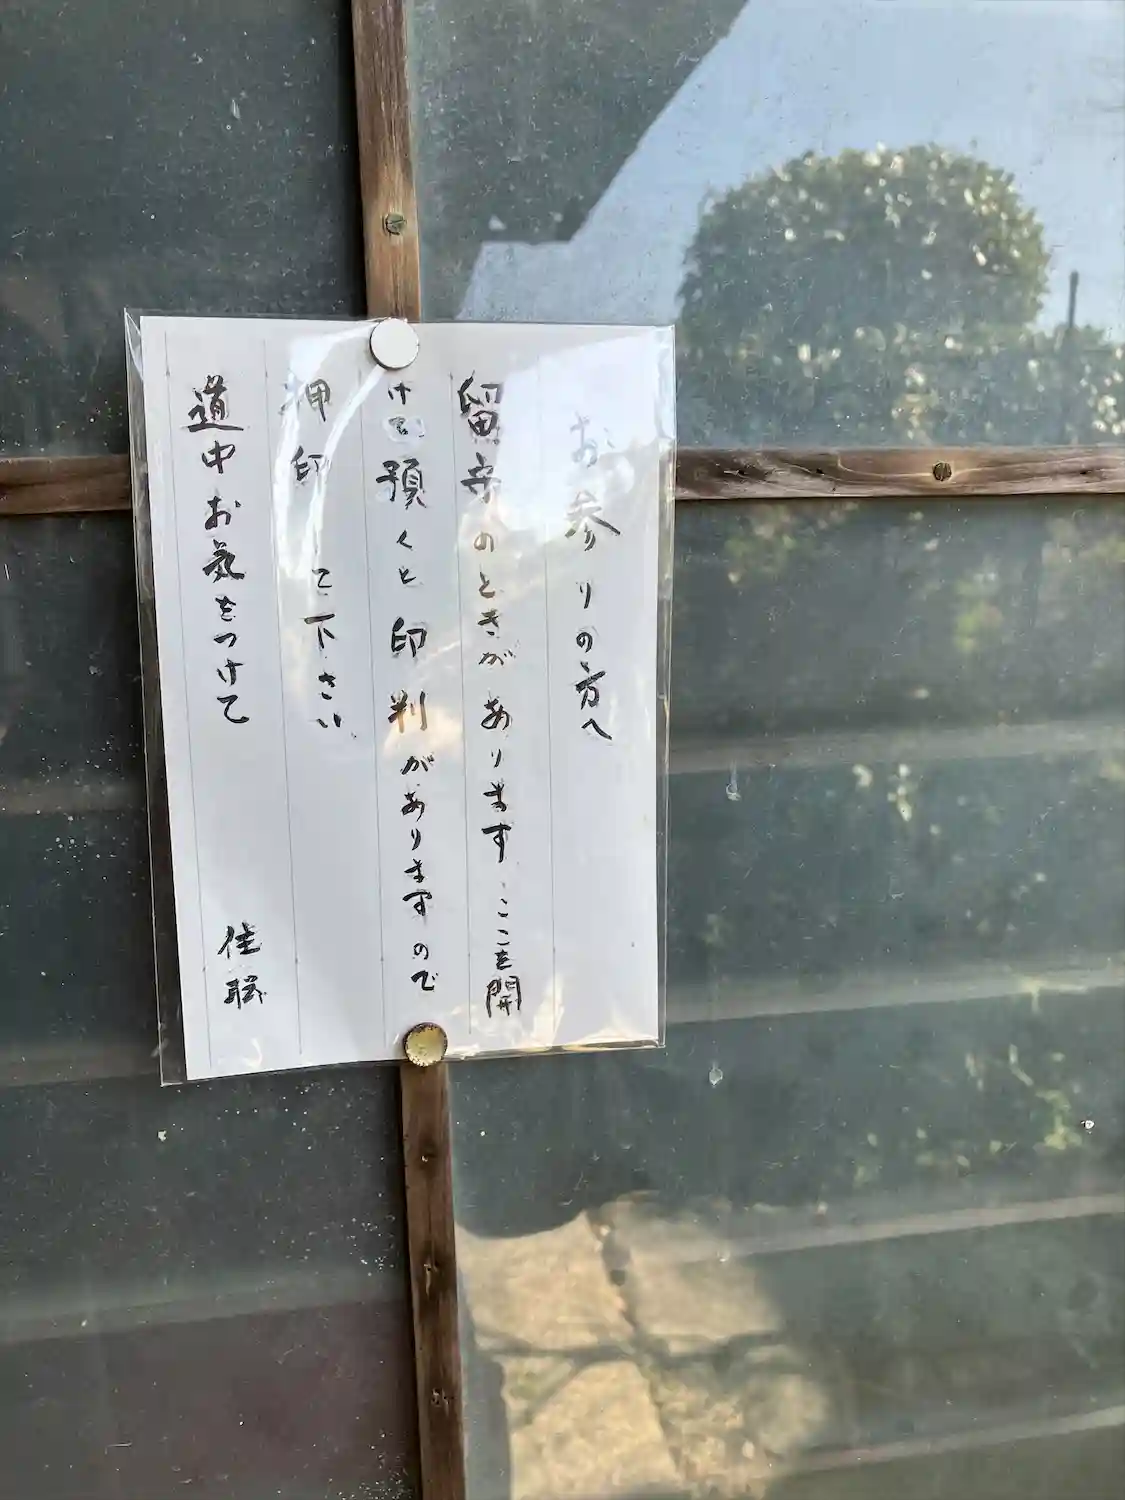 お参りの方へ
留守のときがあります ここを開
けて頂くと印判がありますので
押印 て下さい
道中お気をつけて
住職